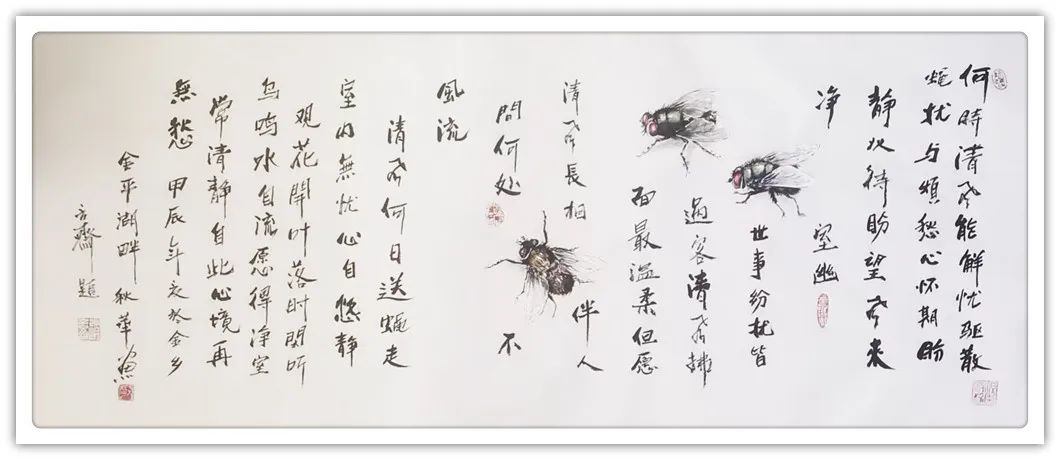 何時清风能解忧驱散
蝇扰与煩愁心怀期盼
静以待盼望风来
净室幽
世事纷扰皆
過客清风拂
面最温柔但愿
清风長相伴人
問何处不
風流
清风何日送蝇走
室内無忧心自悠静
观花開叶落时閑听
鸟鸣水自流愿得净室
常清静自此心境再
無愁 甲辰年夏於金乡
金平湖畔 秋華画
齋題